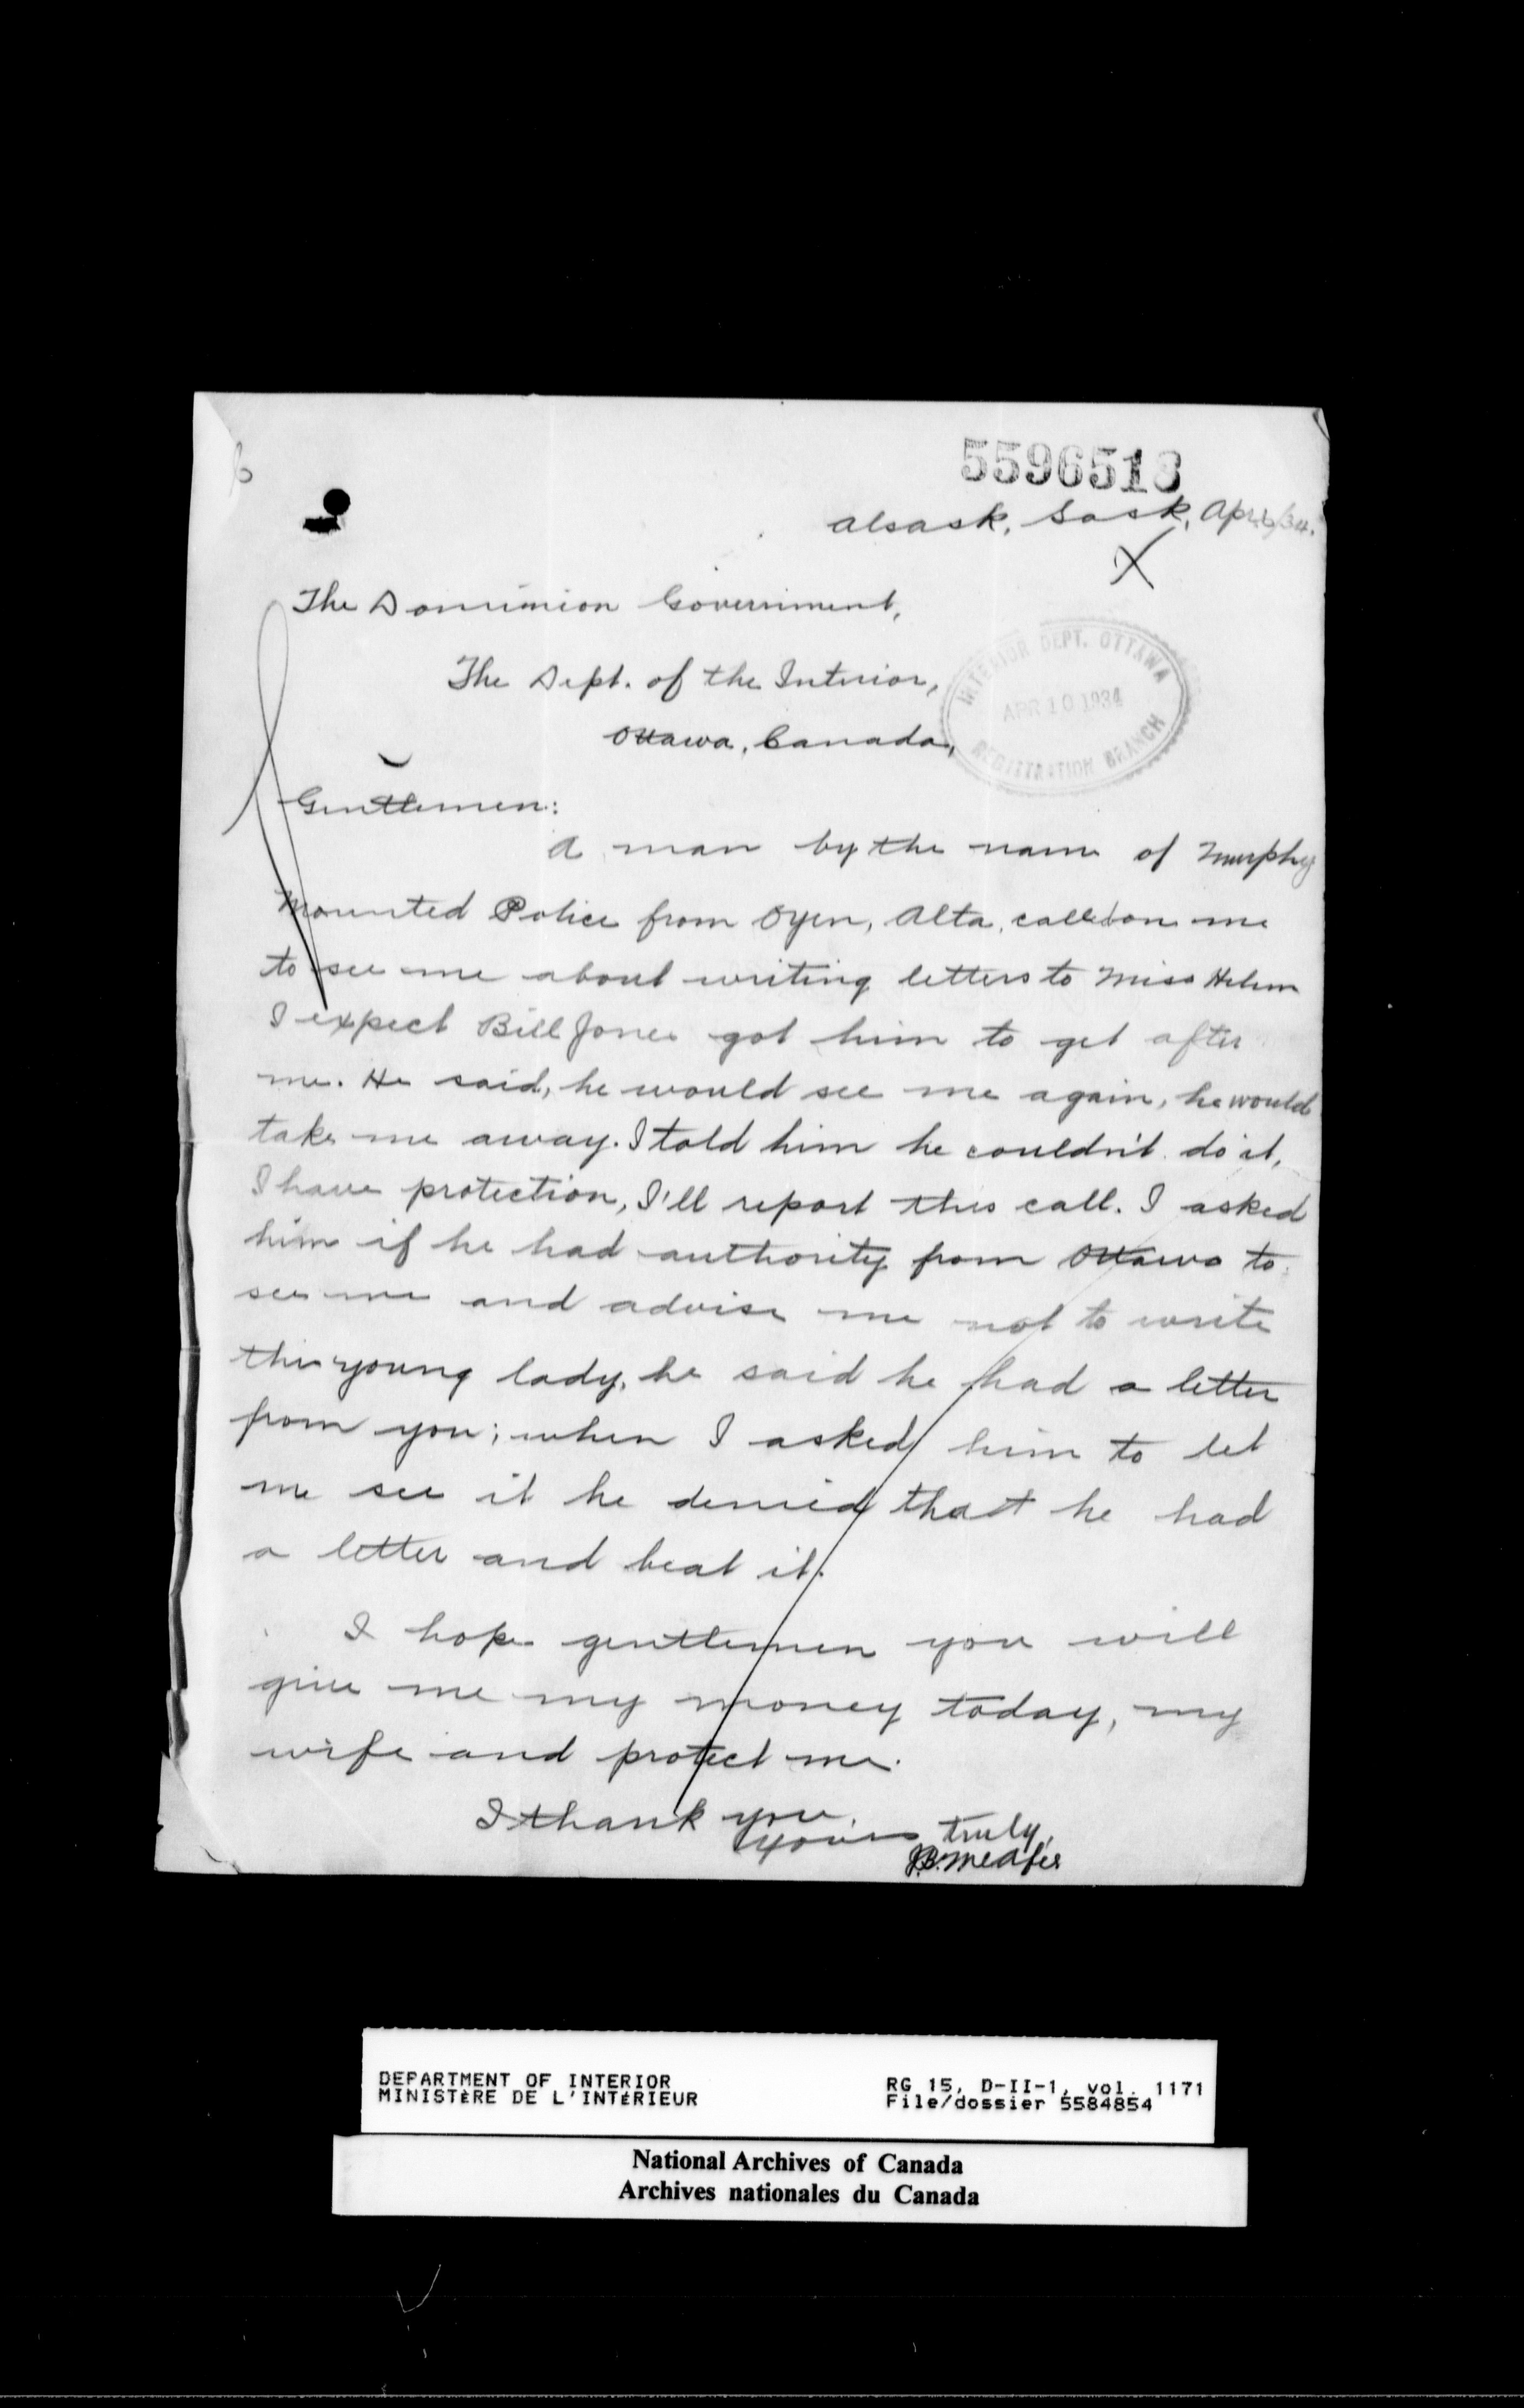 5596513
Alsask, Sask, Apr. 6/34.
The Dominion Government,
The Dept. of the Interior,
Ottawa, Canada,
INTERIOR DEPT. OTTAWA
APR 10 1934
REGISTRATION BRANCH
Gentlemen:
A man by the name of Murphy
Mounted Police from Oyen, Alta, called on me
to see me about writing letters to Miss Helem
I expect Bill Jones got him to get after
me. He said, he would see me again, he would
take me away. I told him he couldn't do it,
I have protection, I'll report this call. I asked
him if he had authority from Ottawa to
see me and advise me not to write
this young lady, he said he had a letter
from you; when I asked him to let
me see it he denied that he had
a letter and beat it.
I hope gentlemen you will
give me my money today, my
wife and protect me.
I thank you.
Yours truly,
DEPARTMENT OF INTERIOR
MINISTÈRE DE L'INTÉRIEUR
RG 15, D-II-1, vol. 1171
File/dossier 5584854
National Archives of Canada
Archives nationales du Canada